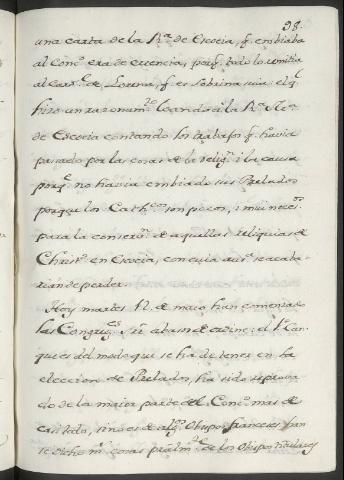 98.
una carta de la R.ª de Escocia, q. embiaba
al Conc.º era de creencia, porq. todo lo remitia
al Car.l de Lorena, q. es sobrina suia: el q.l
hizo un razonam.to loando a la R.ª
de Escocia contando los trabajos q. havia
pasado por las cosas de la relig.n i la causa
porq.e no havia embiado sus Prelados
porque los Cath.cos son pocos, i mui neces.s
para la conserv.n de aquellas reliquias de
Christ.s en Escocia, con cuia aus.a se acaba-
rian de perder.
Hoy martes 11. de maio han comenzado
las Congreg.s abusos de ordine: el
que es del modo que se ha de tener en la
eleccion de Prelados, ha sido reprova
do de la maior parte del Conc.º mas de
casi todo, sino es de alg.s Obispos franceses i han
se dicho m.s cosas pralm.te de los Obispos titulares